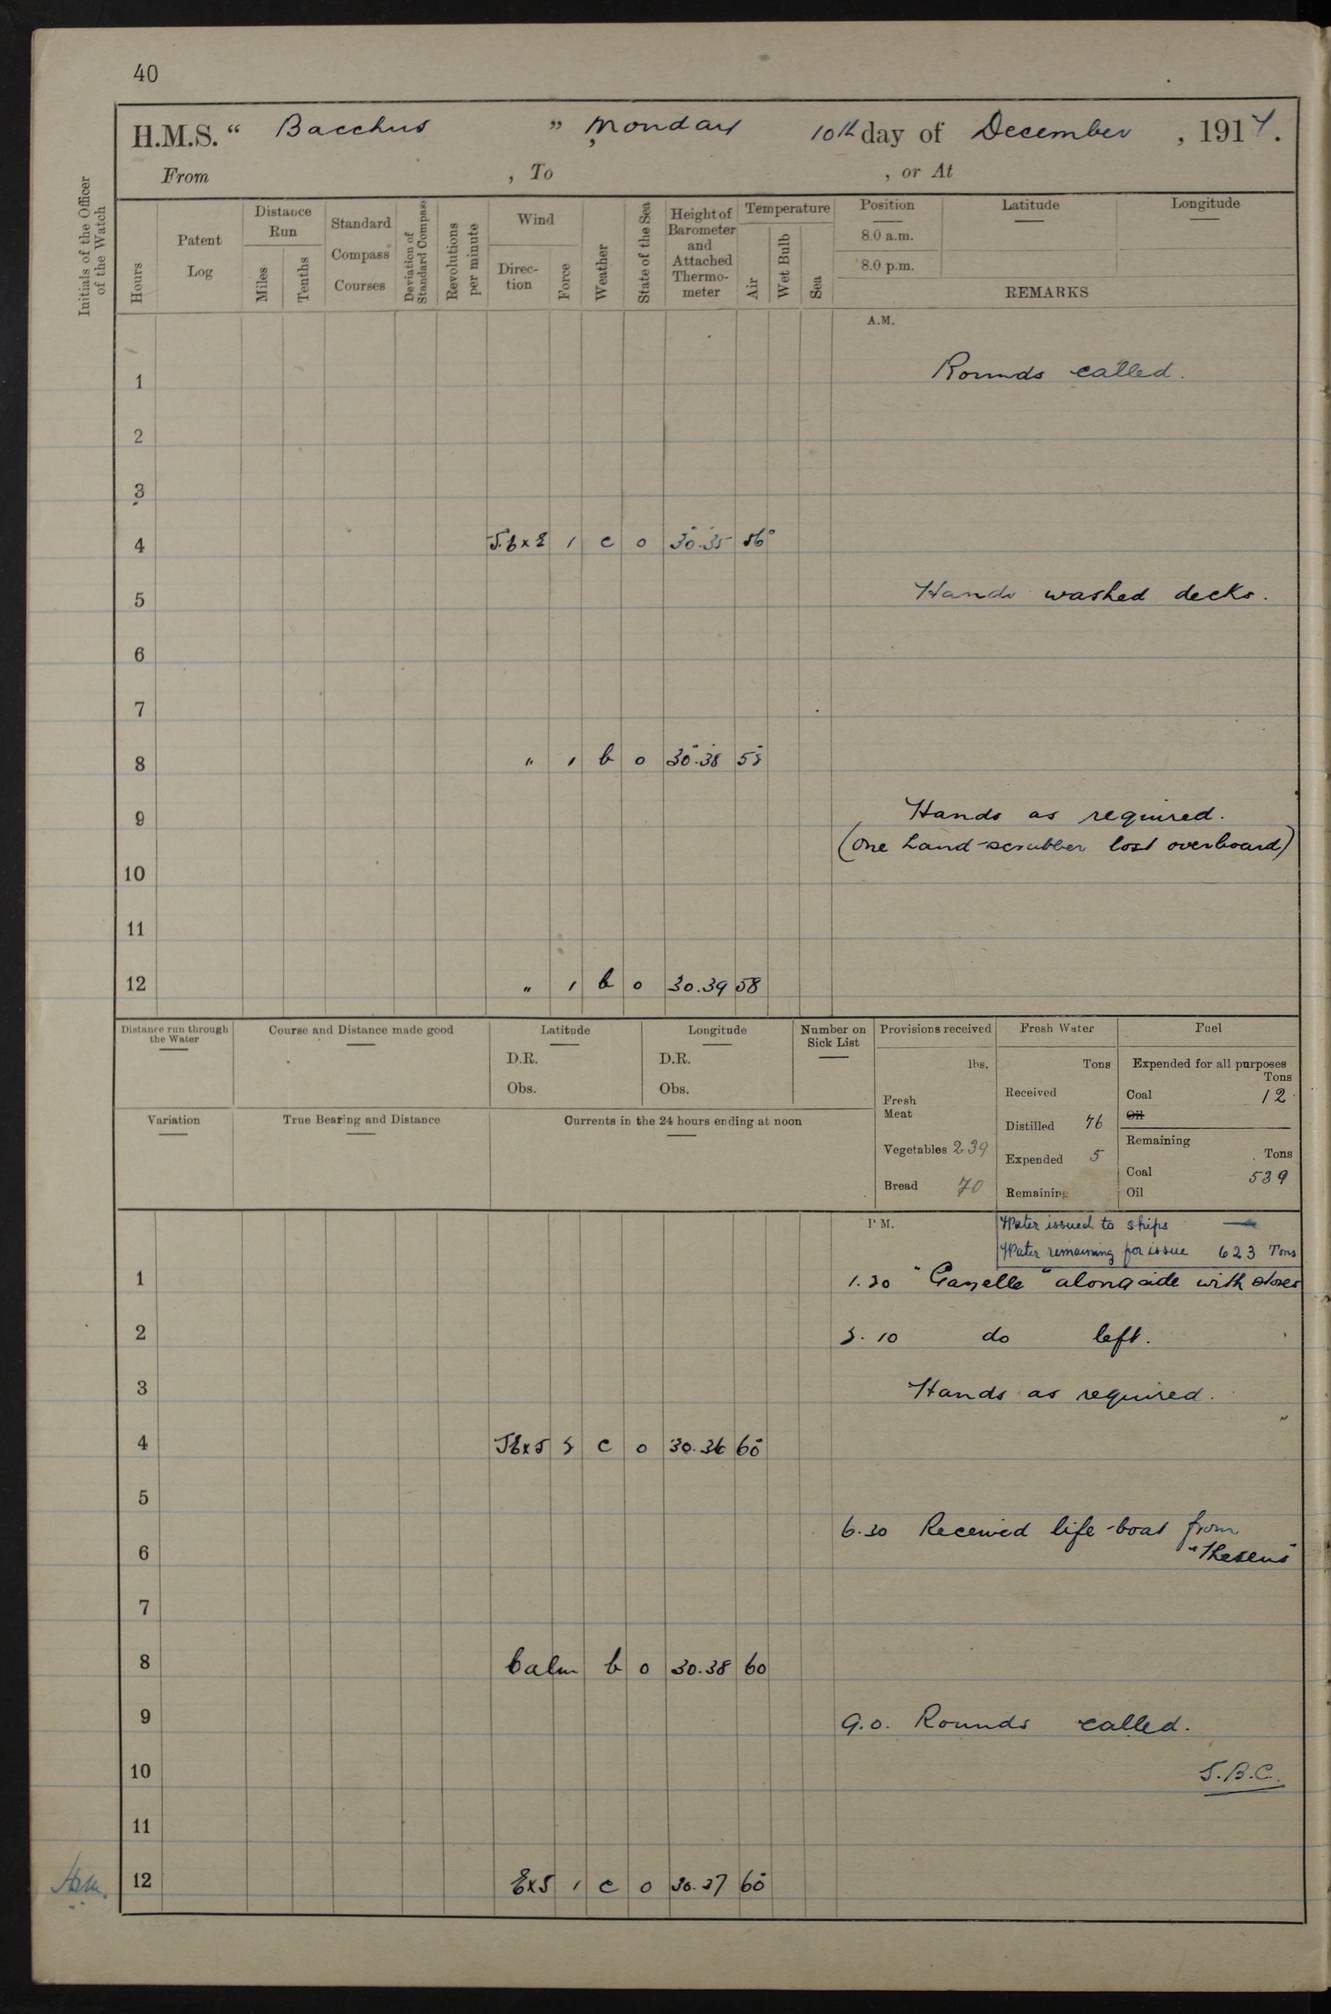 40
H.M.S. “ Bacchus ” , Monday 10th day of December , 1917.
From , To , or At
Initials of the Officer of the Watch
Hours
Patent Log
Distance Run
Miles
Tenths
Standard Compass Courses
Deviation of Standard Compass
Revolutions per minute
Wind
Direction
Force
Weather
State of the Sea
Height of Barometer and Attached Thermometer
Temperature
Air
Wet Bulb
Sea
Position
8.0 a.m.
8.0 p.m.
Latitude
Longitude
REMARKS
A.M.
1 Rounds called.
2
3
4 S.E x E 1 c o 30.35 56°
5 Hands washed decks.
6
7
8 " 1 b o 30.38 55
9 Hands as required.
(One hand-scrubber lost overboard)
10
11
12 " 1 b o 30.39 58
Distance run through the Water
Course and Distance made good
Latitude
D.R.
Obs.
Longitude
D.R.
Obs.
Number on Sick List
Provisions received
lbs.
Fresh Meat
Vegetables 239
Bread 70
Fresh Water
Tons
Received
Distilled 76
Expended 5
Remaining
Fuel
Expended for all purposes
Tons
Coal 12
Oil
Remaining
Tons
Coal 539
Oil
Variation
True Bearing and Distance
Currents in the 24 hours ending at noon
P.M.
Water issued to ships —
Water remaining for issue 623 Tons
1 1.30 "Gazelle" alongside with stores
2 2.10 do left.
3 Hands as required.
4 SE x S 2 c o 30.36 60
5
6.30 Received life-boat from
6 "Theseus"
7
8 Calm b o 30.38 60
9 9.0. Rounds called.
10 S.B.C.
11
12 E x S 1 c o 30.37 60